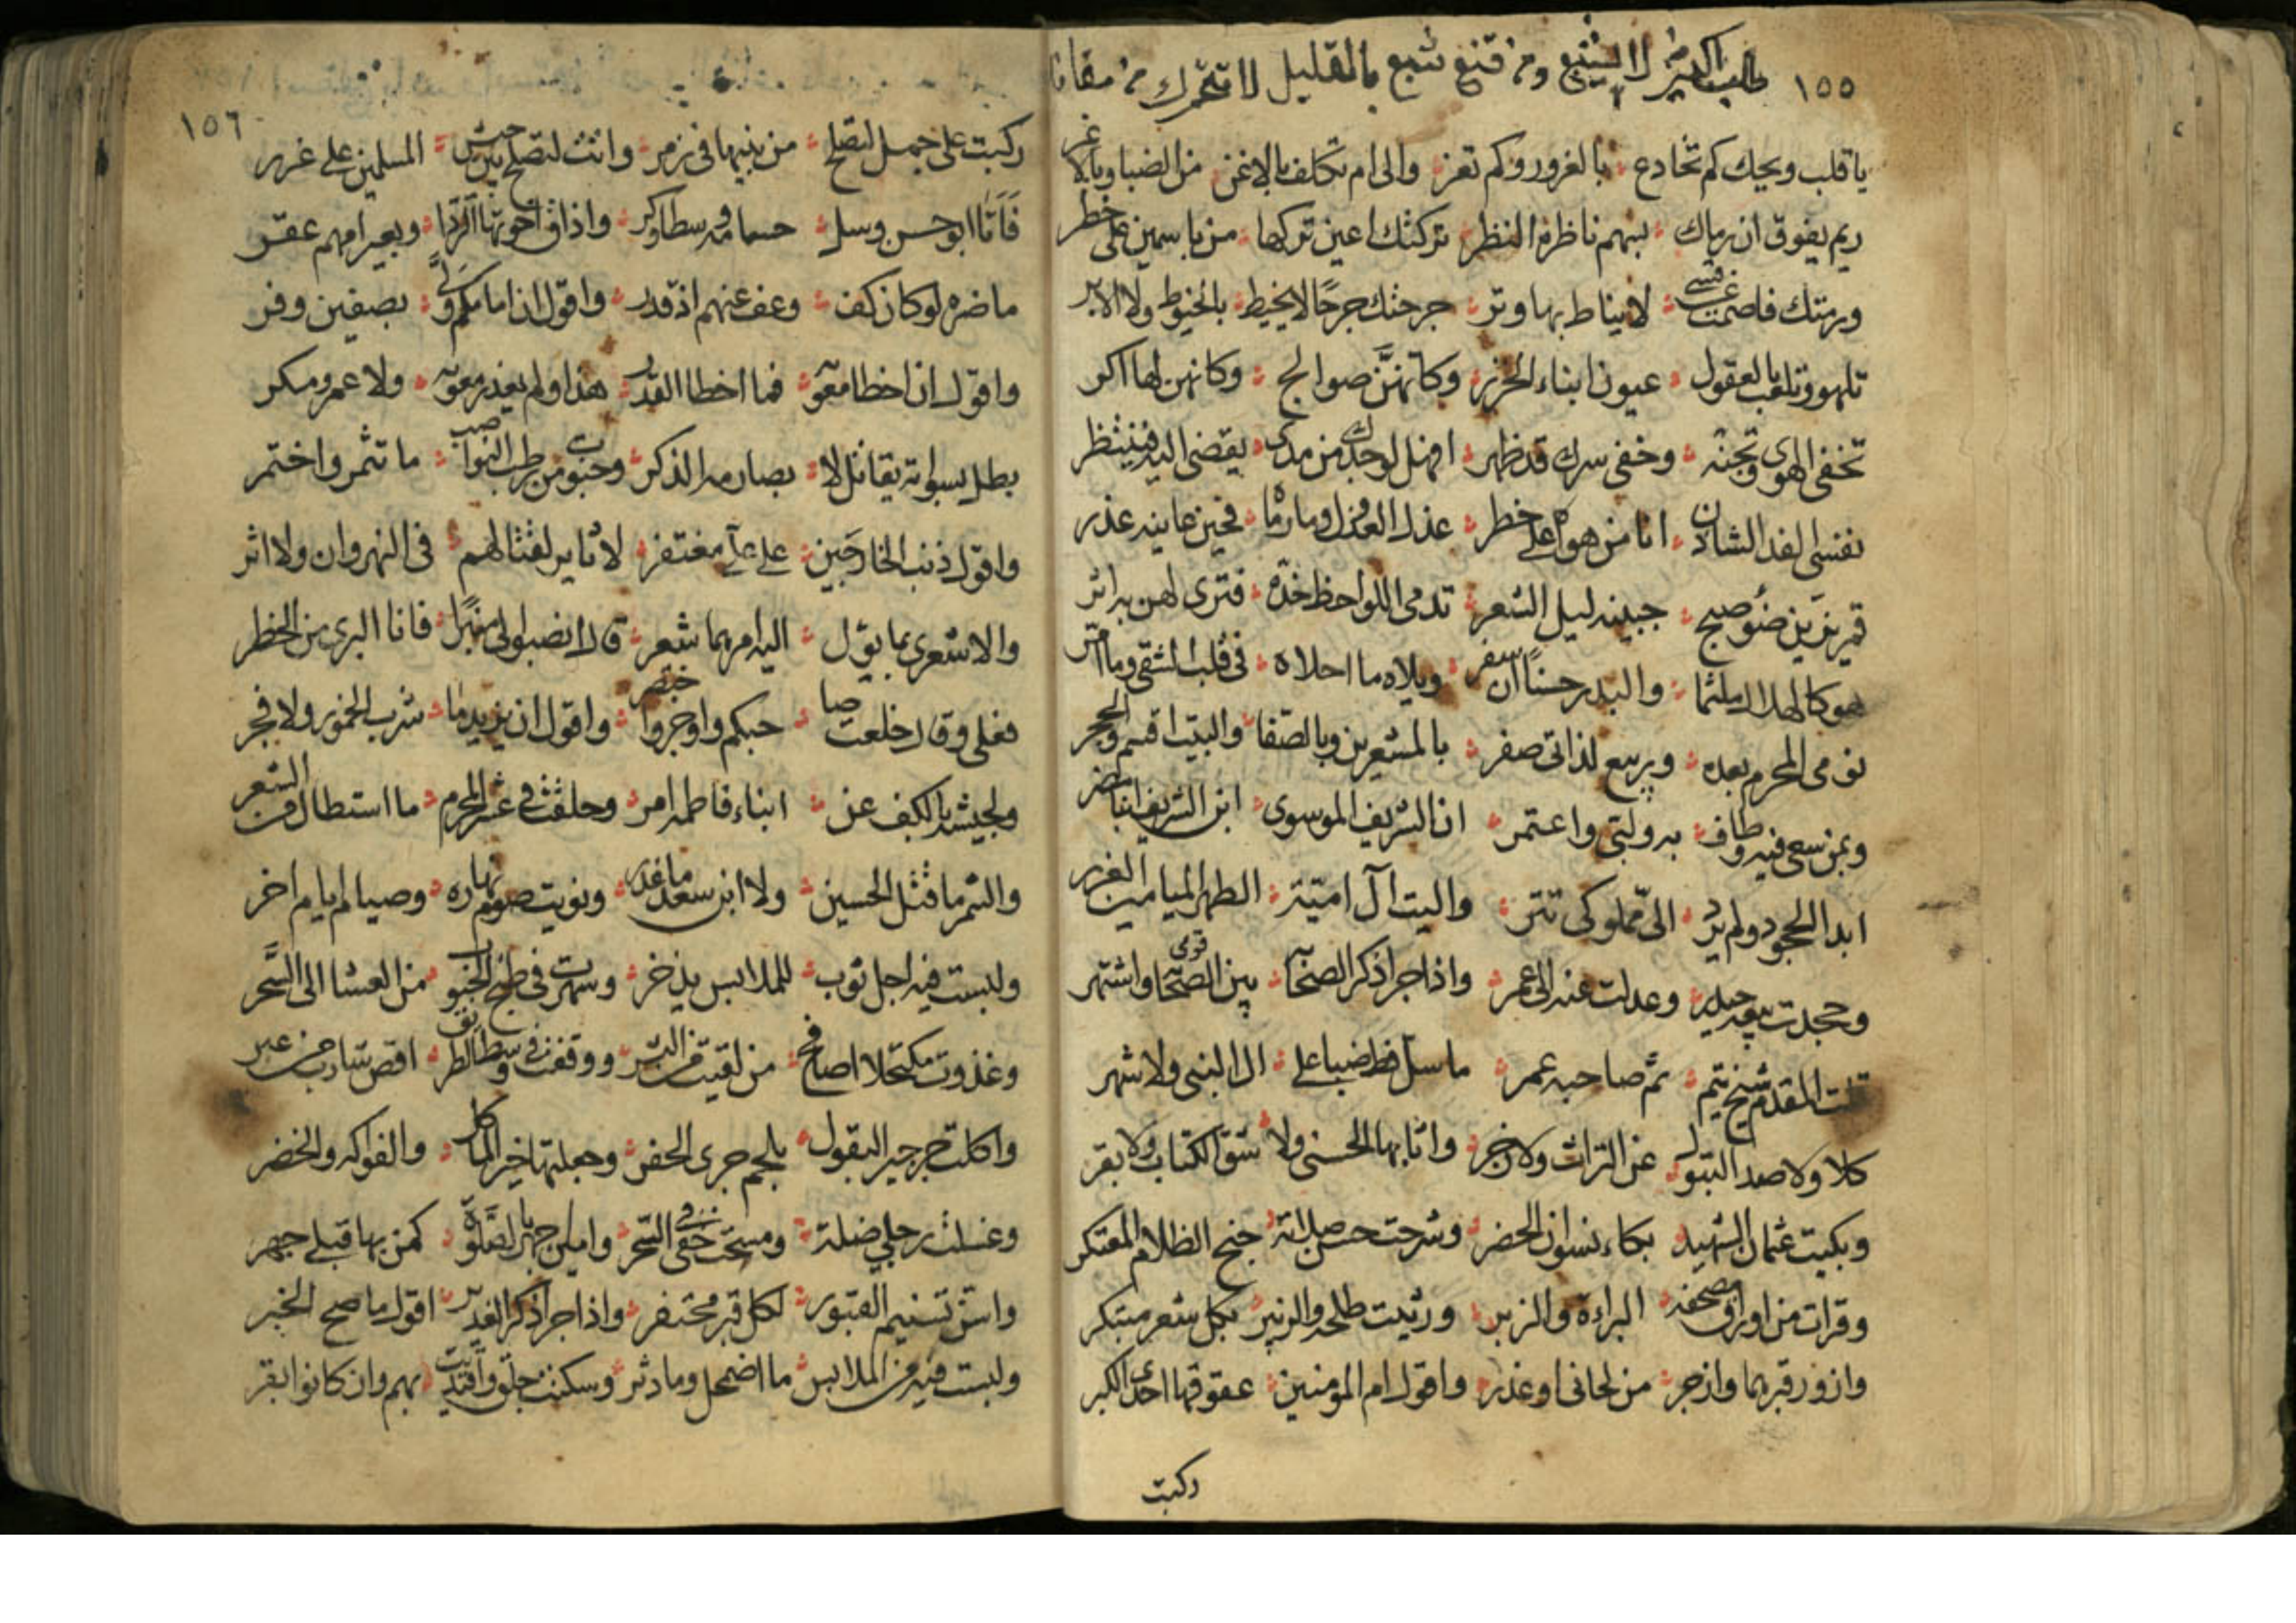 ١٥٥
طلب الكثير لا يشبع ومن قنع شبع بالقليل لا تتحرك من مقامك
يا قلب ويحك كم تخادع بالغرور وكم تغر والى ام تكلف بالاغن من الضبا وبالاغر
ريم يفوق ان رماك بسهم ناظره النظر تركتك اعين تركها من باسهن على خطر
ورمتك فاصمت عن قسى لا يناط بها وتر جرحتك جرحًا لا يخيط بالخيوط ولا الابر
تلهو وتلعب بالعقول عيون ابناء الخزر وكانهنّ صوالج وكانهن لها اكر
تخفى الهوى وتجنه وخفى سرك قد ظهر افهل لوجدك من مدى يفضى اليه فينتظر
نفسى الفدا لشادن انا من هواه على خطر عذل العذول وما راه فحين عاينه عذر
قمر يزين ضوء صبح جبينه ليل الشعر تدمى اللواحظ خده فترى لهن به اثر
هو كالهلال ملثما والبدر حسنًا ان سفر ويلاه ما احلاه فى قلب الشقى وما امر
نومى المحرم بعده وربيع لذاتى صفر بالمشعرين وبالصّفا والبيت اقسم والحجر
وبمن سعى فيه وطاف به ولبّى واعتمر ان الشريف الموسوى ابن الشريف ابا مضر
ابدا الجحود ولم يرد الىّ مملوكى تتر واليت آل اميّة الطهر الميامين الغرر
وجحدت بيعة حيدر وعدلت عنه الى عمر واذا جرا ذكر الصحابة بين قوى واشتهر
قلت المقدم شيخ تيم ثم صاحبه عمر ما سل قط ضبا على ال النبى ولا شهر
كلا ولا صد البتول عن التراث ولا زجر واثابها الحسنى ولا شق الكتاب ولا بقر
وبكيت عثمان الشهيد بكاء نسوان الحضر وشرحت حسن صلاته جنح الظلام المعتكر
وقرات من اوراق مصحفه البراءة والزبر ورثيت طلحه والزبير بكل شعر مبتكر
وازور قبرهما وازجر من لحانى او غدر واقول ام المؤمنين عقوقها احدى الكبر
ركبت
١٥٦
ركبت على جمل لتصلح من بنيها فى زمر واتت لتصلح بين جيش المسلمين على غرر
فَاَتَا ابو حسن وسل حسامه وسطا وكر واذاق اخوتها الردا وبعير امهم عقر
ما ضره لو كان كف وعف عنهم اذ قدر واقول ان امامكم ولّى بصفين وفر
واقول ان اخطا معوية فما اخطا القدر هذا ولم يغدر معوية ولا عمرو مكر
بطل بسواته يقاتل لا بصارمه الذكر وجنيت من رطب النواصب ما تتمر واختمر
واقول ذنب الخارجين على علىّ مغتفر لا ثاير لقتالهم فى النهروان ولا اثر
والاشعرى بما يؤل اليه امرهما شعر قال انصبوا لى منبرًا فانا البرى من الخطر
فعلى وقال خلعت صاحبكم واوجز واختصر واقول ان يزيد ما شرب الخمور ولا فجر
ولجيشه بالكف عن ابناء فاطمة امر وحلقت فى عشر المحرم ما استطال من الشعر
والشمر ما قتل الحسين ولا ابن سعد ما غدر ونويت صوم نهاره وصيام ايام اخر
ولبست فيه اجل ثوب للملابس يذخر وسهرت فى طبخ الحبوب من العشا الى السَّحر
وغدوت مكتحلا اصافح من لقيت من البشر ووقفت فى وسط الطريق اقص شارب من عبر
واكلت جرجير البقول بلحم جرى الحفر وجعلتها خير الماكل والفواكه والخضر
وغسلت رجلى ضلة ومسحت خفى فى السّحر وامين اجهر بالصلوة كمن بها قبلى جهر
واسن تسنيم القبور لكل قبر محتفر واذا جرا ذكر الغدير اقول ما صح الخبر
ولبست فيه من الملابس ما اضمحل وما دثر وسكنت جلّق واقتديت بهم وان كانوا بقر